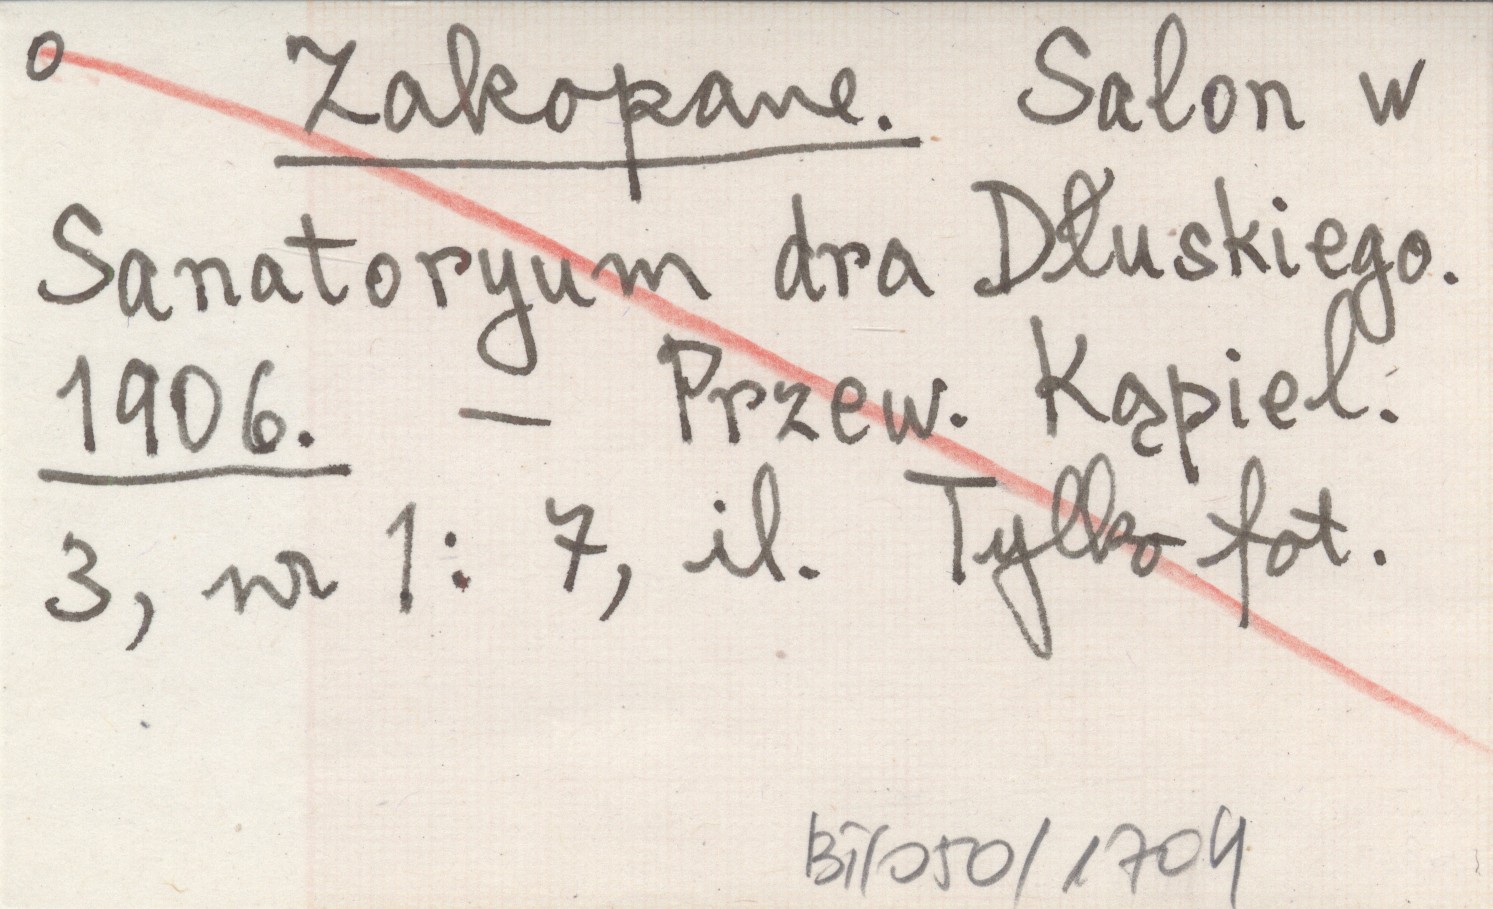 o Zakopane. Salon w
Sanatoryum dra Dłuskiego.
1906. — Przew. Kąpiel.
3, nr 1: 7, il. Tylko fot.
BT/050/1704